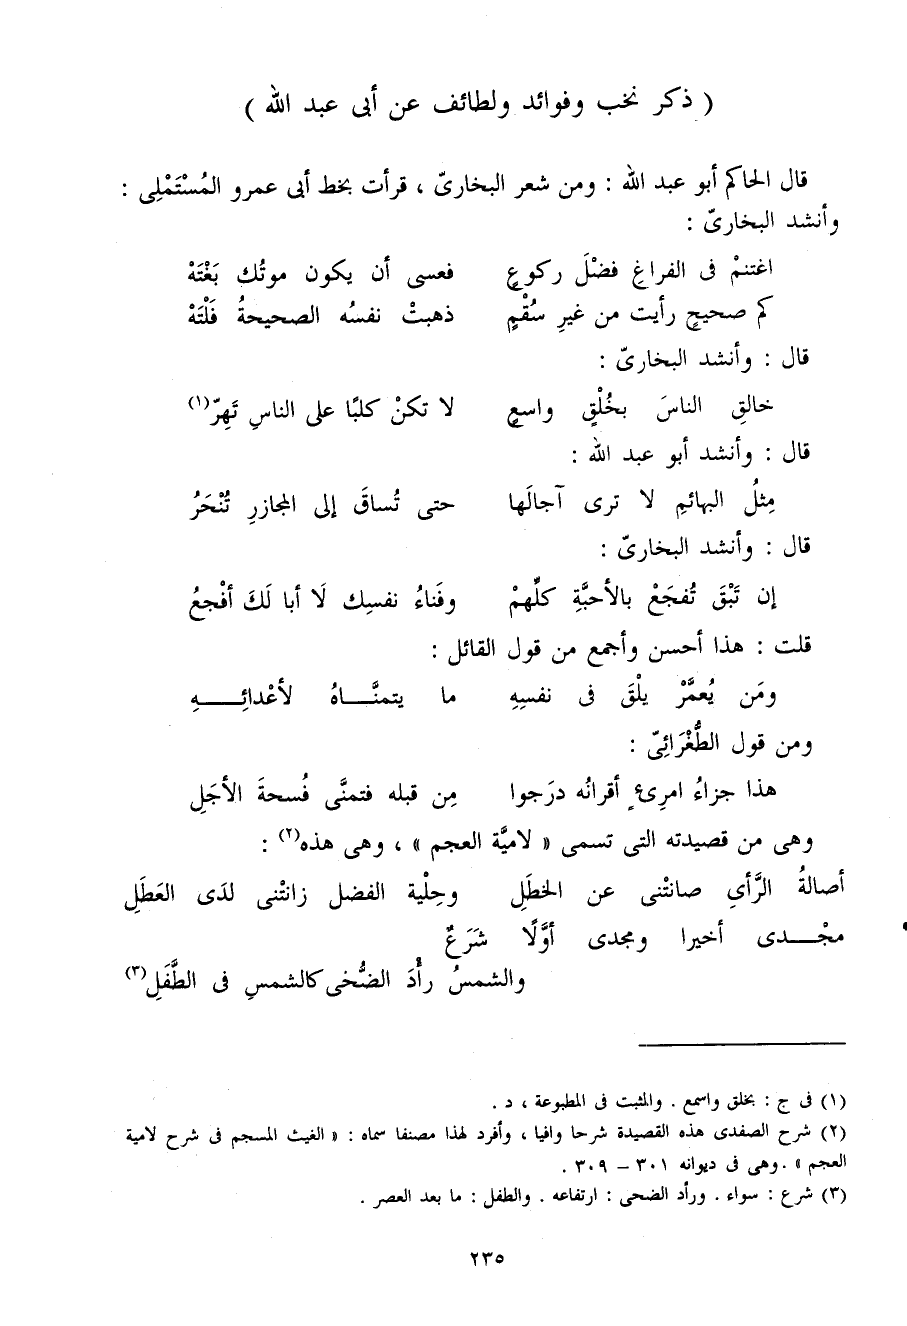 ( ذكر نخب وفوائد ولطائف عن أبى عبد الله )
قال الحاكم أبو عبد الله : ومن شعر البخارىّ ، قرأت بخط أبى عمرو المُسْتَمْلِى :
وأنشد البخارىّ :
اغتنمْ فى الفراغِ فضْلَ ركوعٍ فعسى أن يكون موتُك بَغْتَهْ
كم صحيحٍ رأيت من غيرِ سُقْمٍ ذهبتْ نفسُه الصحيحةُ فَلْتَهْ
قال : وأنشد البخارىّ :
خالقِ الناسَ بخُلْقٍ واسعٍ لا تكنْ كلبًا على الناسِ تَهِرّ(١)
قال : وأنشد أبو عبد الله :
مِثلُ البهائمِ لا ترى آجالَها حتى تُساقَ إلى المجازرِ تُنْحَرُ
قال : وأنشد البخارىّ :
إن تَبْقَ تُفجَعْ بالأحبَّةِ كلِّهمْ وفَناءُ نفسِك لَا أبا لَكَ أفْجعُ
قلت : هذا أحسن وأجمع من قول القائل :
ومَن يُعمَّرْ يلْقَ فى نفسِهِ ما يتمنَّاهُ لأعْدائِهِ
ومن قول الطُّغْرَائِىّ :
هذا جزاءُ امرِىءٍ أقرانُه درَجوا مِن قبله فتمنَّى فُسحةَ الأجَلِ
وهى من قصيدته التى تسمى « لاميَّة العجم » ، وهى هذه(٢) :
أصالةُ الرَّأىِ صانتْنى عن الخطَلِ وحِلْية الفضل زانتْنى لدَى العَطَلِ
مجْدى أخيرا ومجدى أوَّلًا شَرَعٌ
والشمسُ رأْدَ الضُّحَى كالشمسِ فى الطَّفَلِ(٣)
(١) فى ج : بخلق واسمع . والمثبت فى المطبوعة ، د .
(٢) شرح الصفدى هذه القصيدة شرحا وافيا ، وأفرد لهذا مصنفا سماه : « الغيث المسجم فى شرح لامية
العجم » . وهى فى ديوانه ٣٠١ – ٣٠٩ .
(٣) شرع : سواء . ورأد الضحى : ارتفاعه . والطفل : ما بعد العصر .
٢٣٥